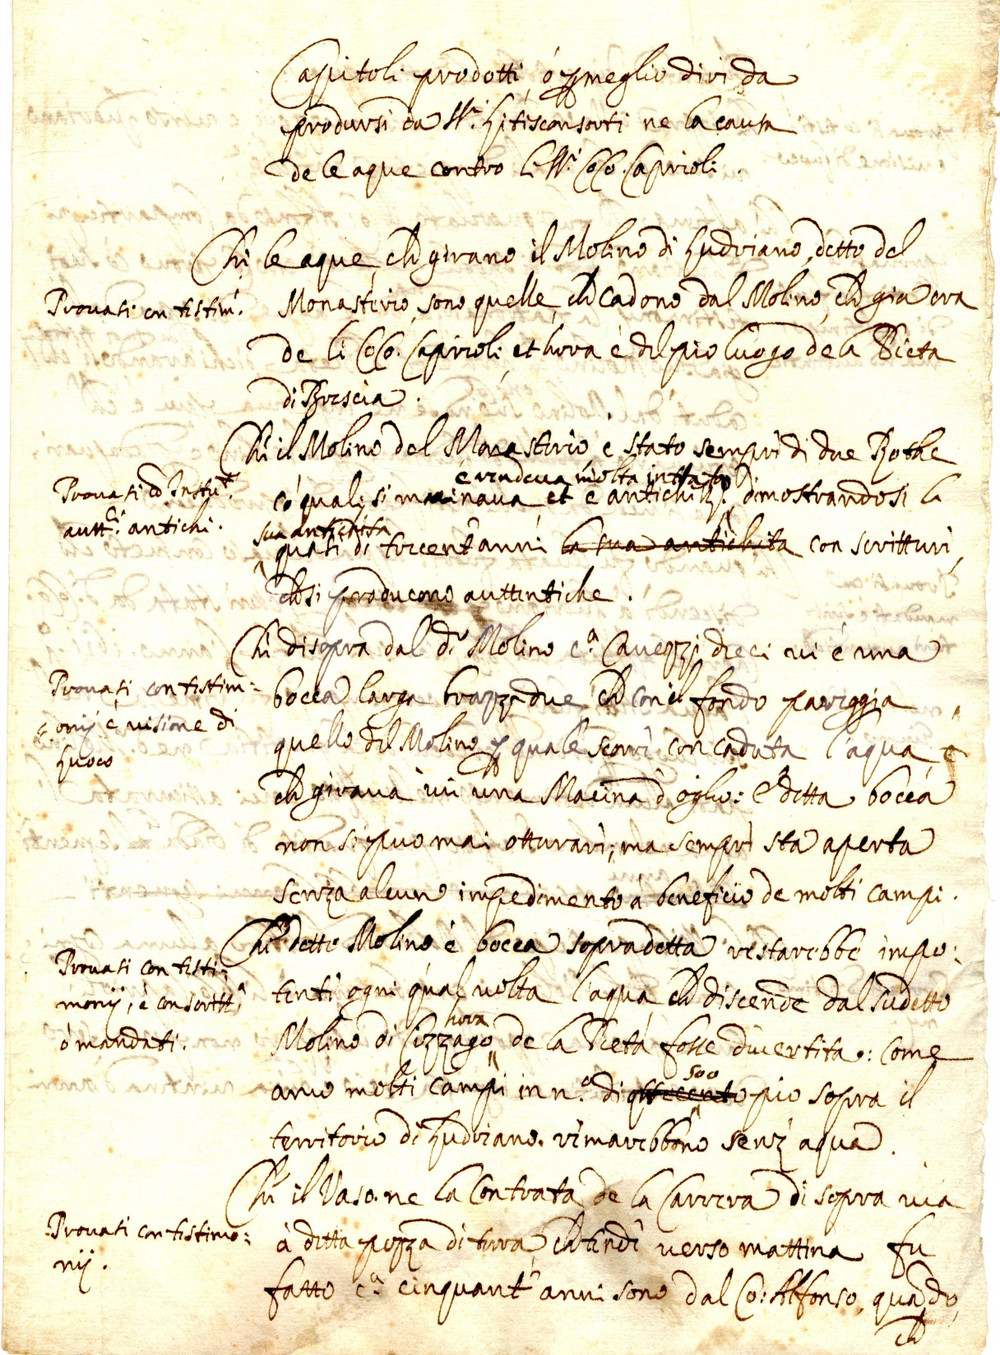 Capitoli prodotti, ó p meglio diri da
prodursi da SS.ri Litisconsorti ne la causa
de le aque contro li SS.ri Co: Co: Caprioli.
Chi le aque, ch girano il Molino di Ludriano, detto del
Provati con testim.
Monasterio, sono quelle, ch cadono dal Molino, ch gia era
de li Co: Co: Caprioli, et hora è del pio luogo de la Pieta
di Brescia.
Chi il Molino del Monasterio è stato sempri di due Rothe
Provati co Instr.ti
autt.ci antichi.
é rendeva molta intrata
có quali si macinava et è antichiss.o dimostrandosi la
sua antichita
quasi di trecent'anni la sua antichita con scritturi,
ch si producono auttentiche.
Chi disopra dal d.o Molino c.a Cavezzi dieci vi é una
Provati con testim=
onij é visione di
Luoco
bocca larga brazza due ch con il fondo pareggia
quello del Molino p quale scorri con caduta l'aqua é
ch girava ivi una Macina d'oglio: é detta bocca
non si puo mai otturari; ma sempri sta aperta
senza alcuno impedimento á beneficio de molti campi.
Chi detto Molino é bocca sopradetta restarebbe impo:
Provati con testi:
monij, é con scritt.i
ó mandati.
tenti ogni qual volta l'aqua ch discende dal sudetto
Molino di Cizzago hora de la Pietá fosse divertita: come
anco molti campi in n.o di 500 piò sopra il
territorio di Ludriano. rimarebbono senz'aqua.
Chi il Vaso ne la Contrata de la Carrera di sopra via
Provati con testimo=
nij.
á detta pezza di terra, ch tendi verso mattina fu
fatto c.a cinquant'anni sono dal Co: Alfonso, quando,
ch